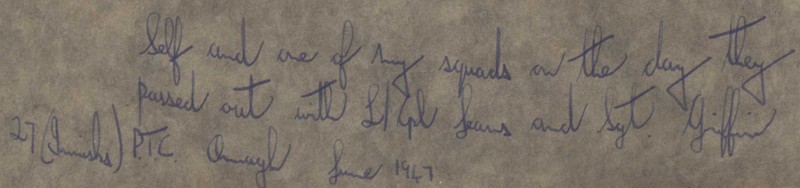 Self and one of my squads on the day they
passed out with L/Cpl Jeans and Sgt. Griffin
27 (Innisks) P.T.C. Omagh June 1947